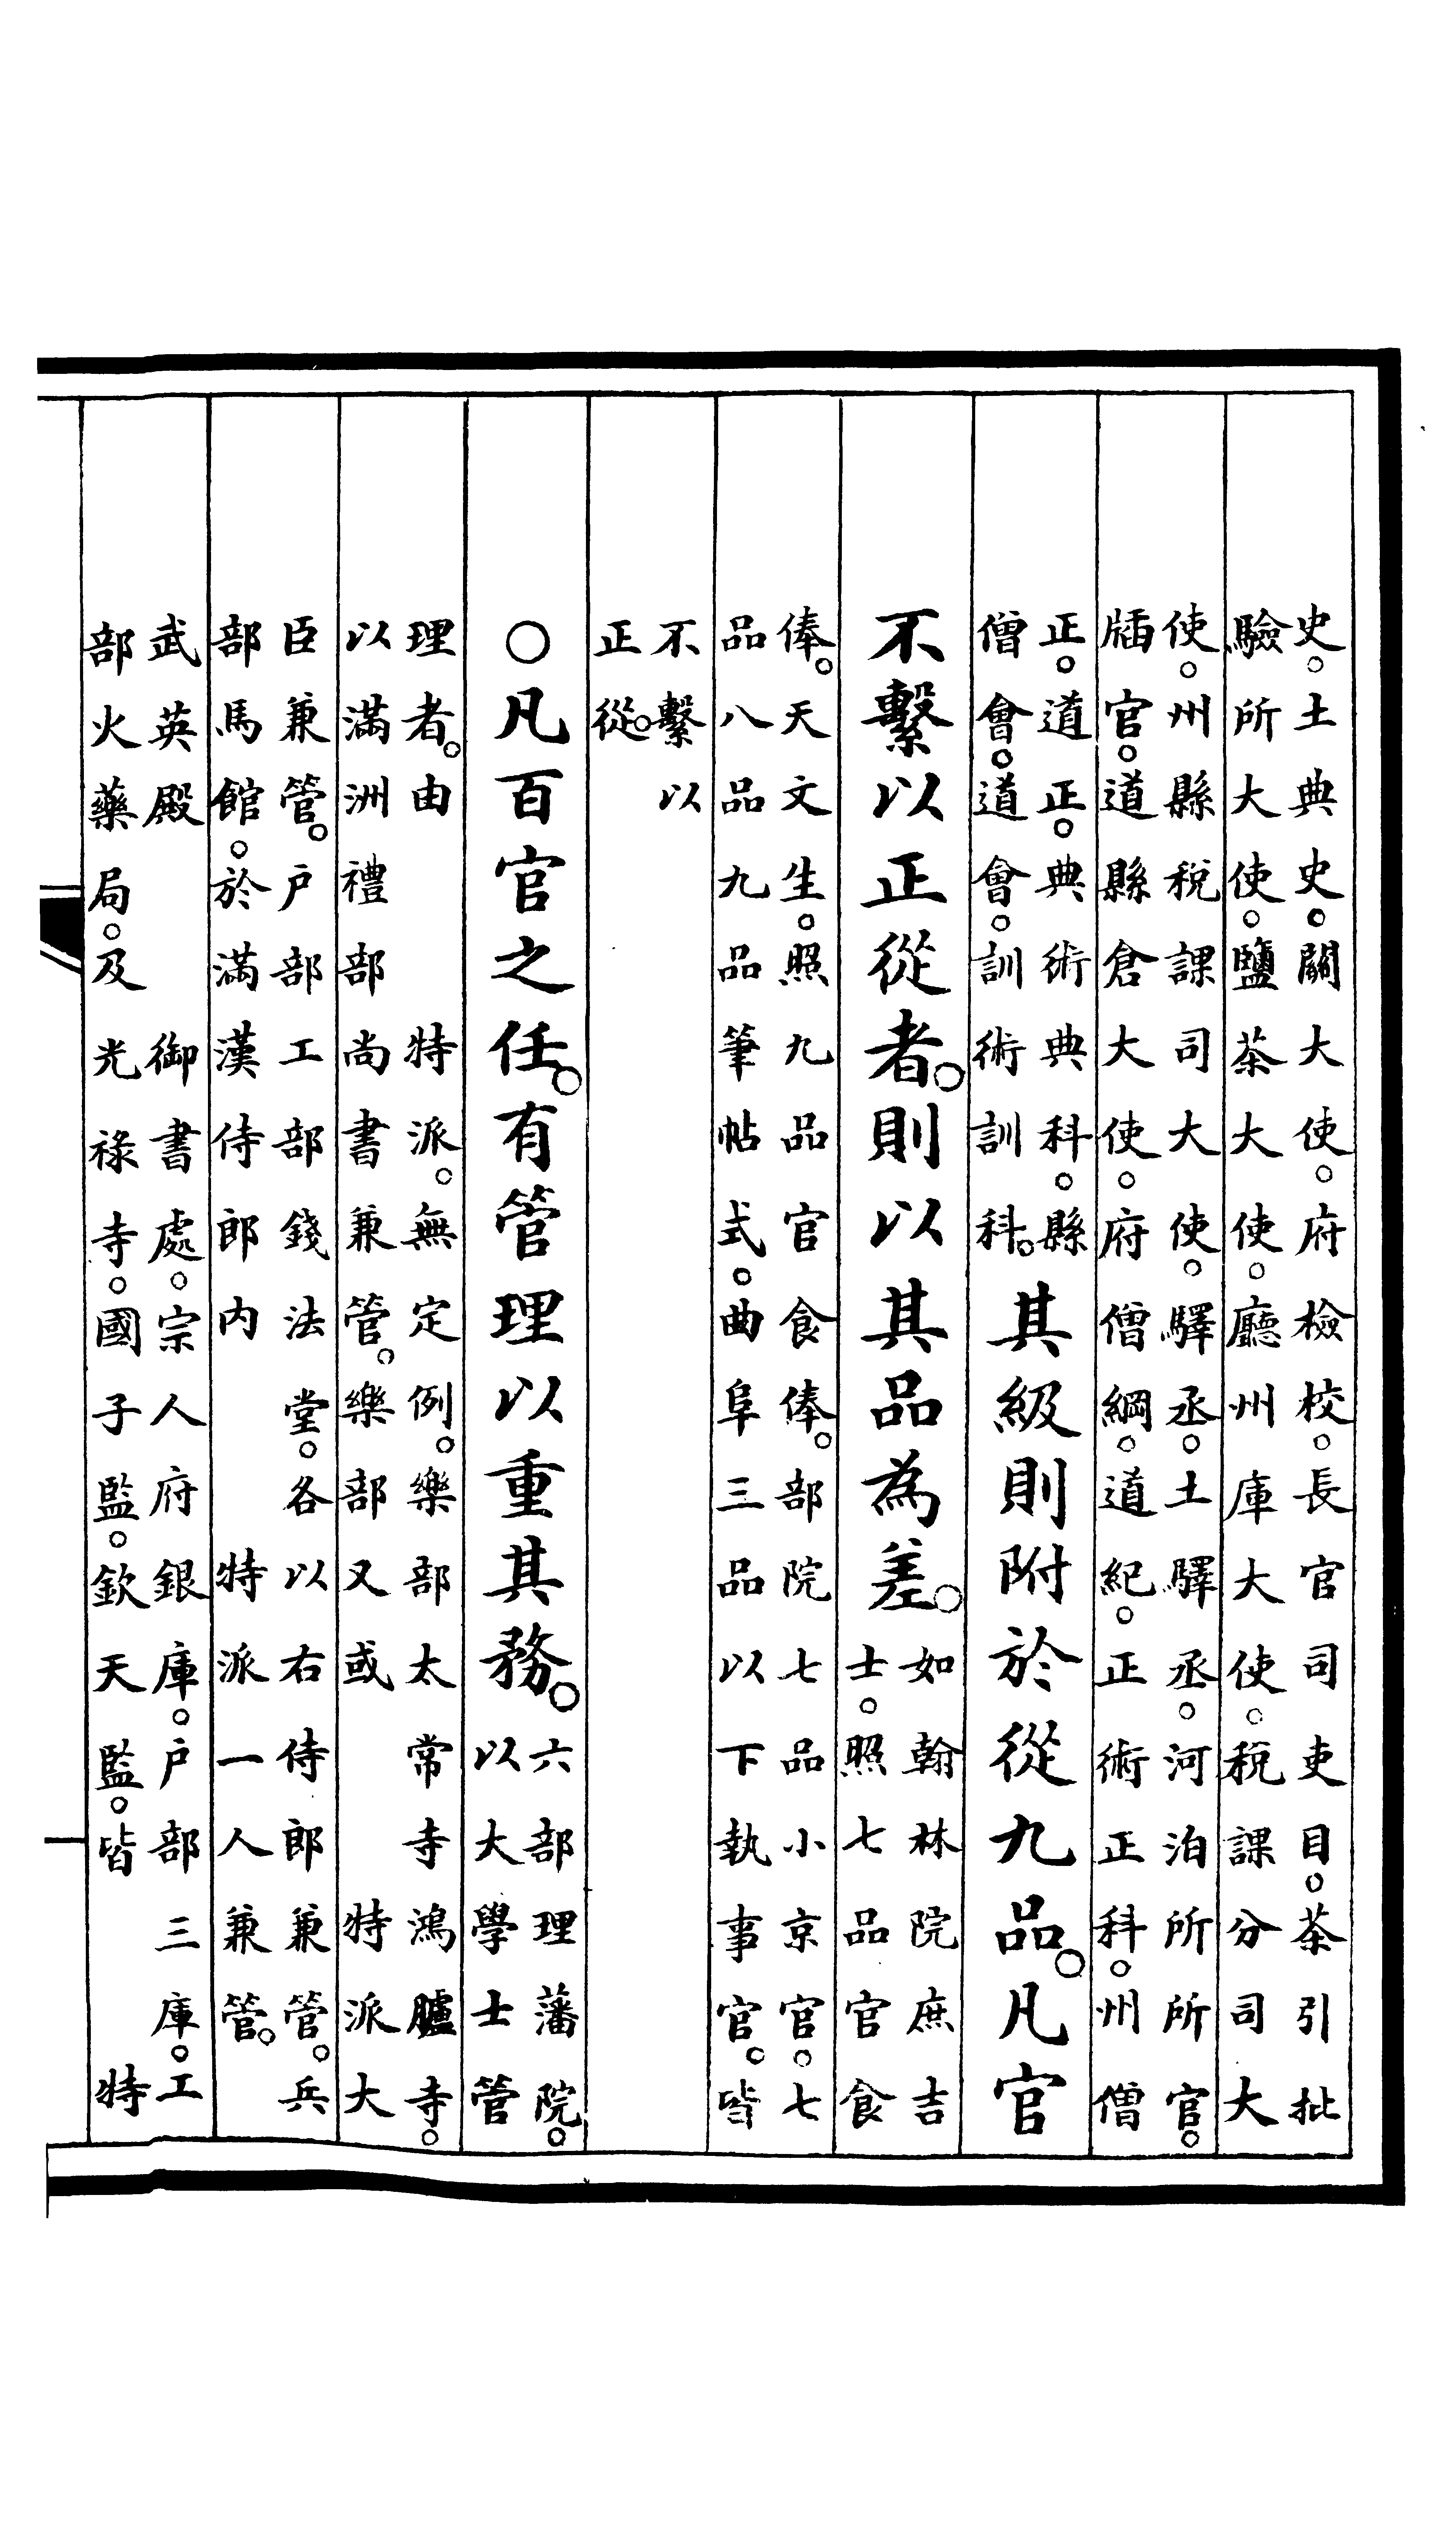 史。土典史。關大使。府檢校。長官司吏目。茶引批
驗所大使。鹽茶大使。廳州庫大使。稅課分司大
使。州縣稅課司大使。驛丞。土驛丞。河泊所所官。
牐官。道縣倉大使。府僧綱。道紀。正術正科。州僧
正。道正。典術典科。縣
僧會。道會。訓術訓科。
其級則附於從九品。凡官
不繫以正從者。則以其品為差。
如翰林院庶吉
士。照七品官食
俸。天文生。照九品官食俸。部院七品小京官。七
品八品九品筆帖式。曲阜三品以下執事官。皆
不繫以
正從。
○凡百官之任。有管理以重其務。
六部理藩院。
以大學士管
理者。由特派。無定例。樂部太常寺鴻臚寺。
以滿洲禮部尚書兼管。樂部又或特派大
臣兼管。戶部工部錢法堂。各以右侍郎兼管。兵
部馬館。於滿漢侍郎內特派一人兼管。
武英殿御書處。宗人府銀庫。戶部三庫。工
部火藥局。及光祿寺。國子監。欽天監。皆特